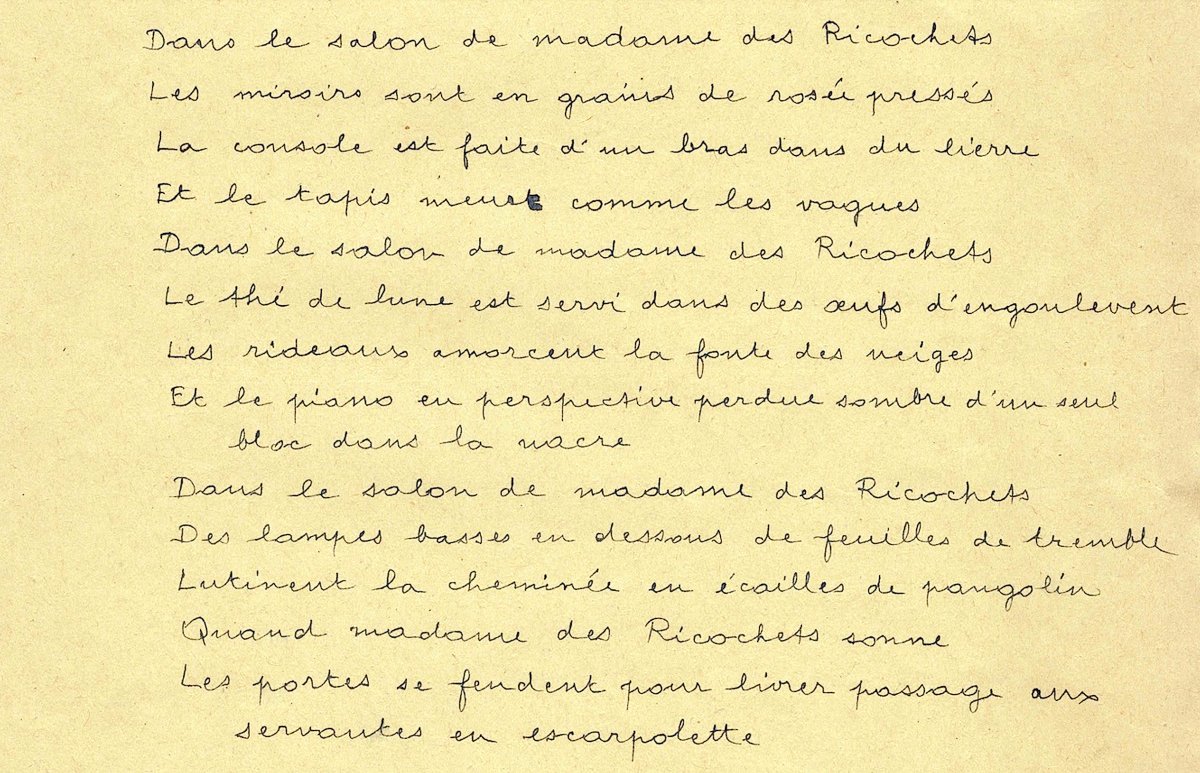 Dans le salon de madame des Ricochets
Les miroirs sont en grains de rosée pressés
La console est faite d'un bras dans du lierre
Et le tapis meurt comme les vagues
Dans le salon de madame des Ricochets
Le thé de lune est servi dans des œufs d'engoulevent
Les rideaux amorcent la fonte des neiges
Et le piano en perspective perdue sombre d'un seul
bloc dans la nacre
Dans le salon de madame des Ricochets
Des lampes basses en dessous de feuilles de tremble
Lutinent la cheminée en écailles de pangolin
Quand madame des Ricochets sonne
Les portes se fendent pour livrer passage aux
servantes en escarpolette